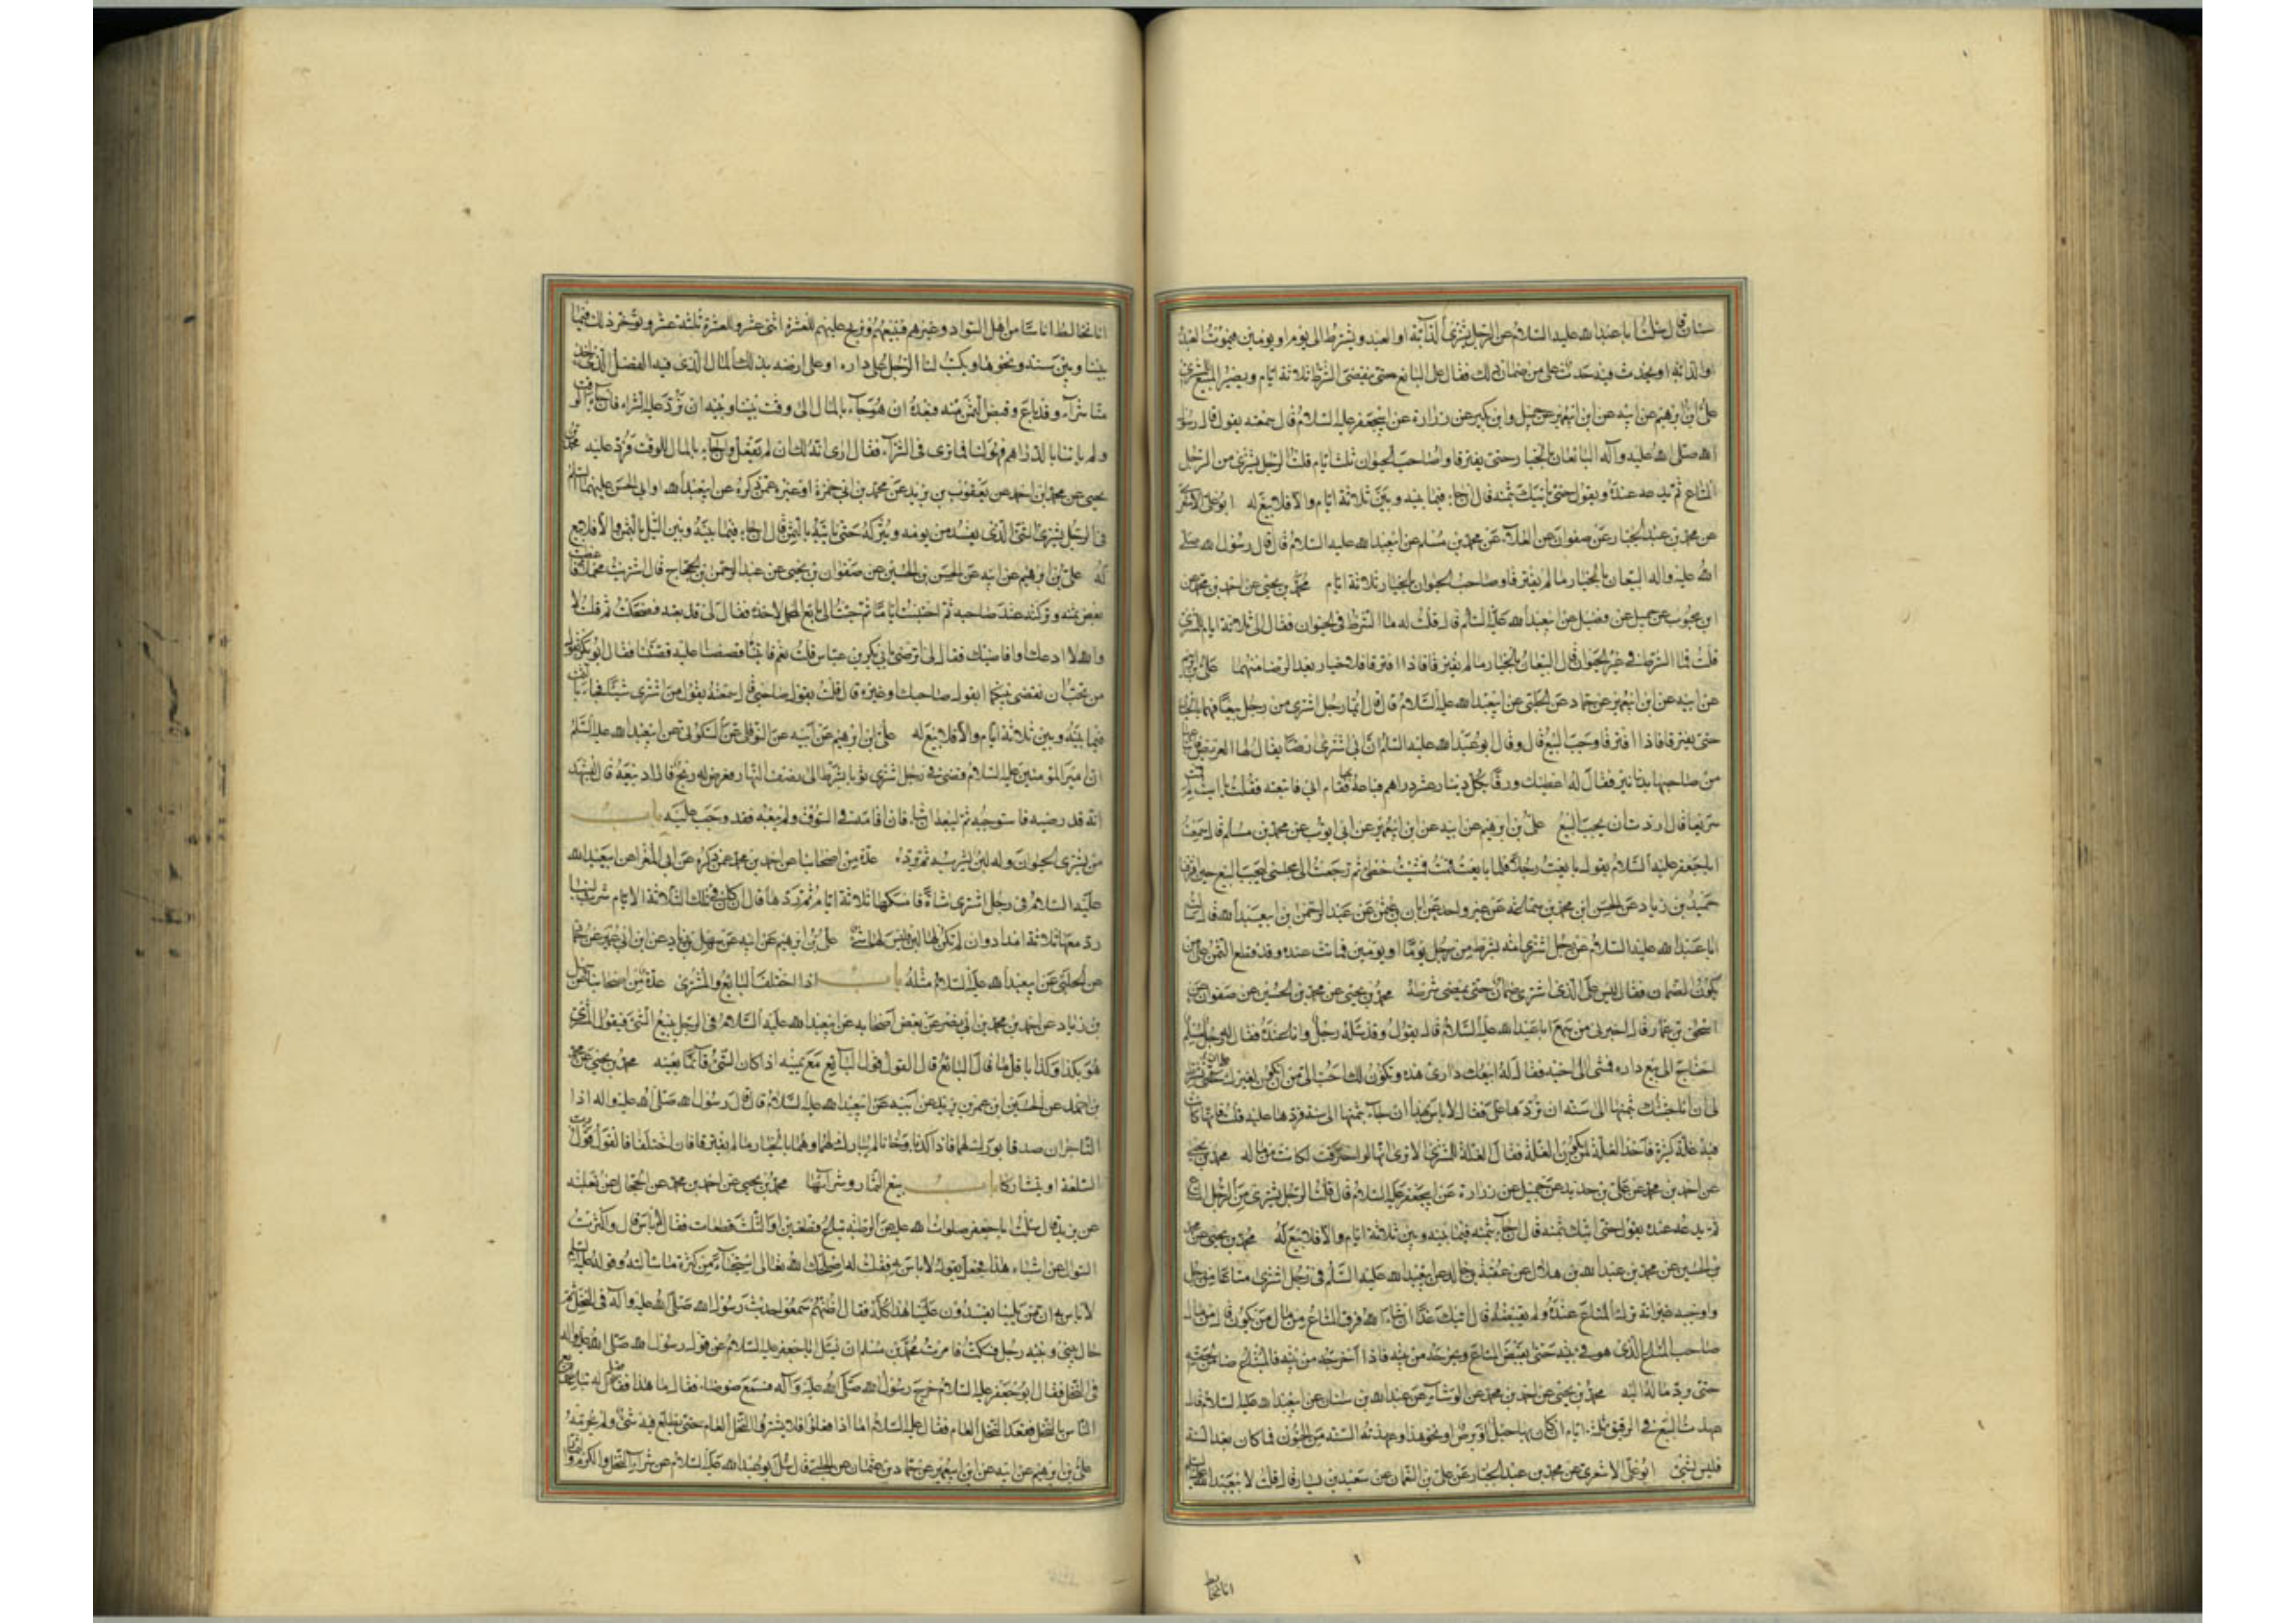 سنان قال سئلت ابا عبدالله عليه السلام عن الرجل يشترى الدابة او العبد ويشترط الى يوم او يومين فيموت العبد
او الدابة او يحدث فيه حدث على من ضمان ذلك فقال على البايع حتى ينقضى الشرط ثلاثة ايام ويصير المبيع للمشترى
على بن ابرهيم عن ابيه عن ابن ابيعمير عن جميل وابن بكير عن زرارة عن ابيجعفر عليه السلام قال سمعته يقول قال رسول
الله صلى الله عليه وآله البايعان بالخيار حتى يفترقا وصاحب الحيوان ثلث ايام قلت الرجل يشترى من الرجل
المتاع ثم يدعه عنده ويقول حتى ناتيك بثمنه قال ان جاء فيما بينه وبين ثلاثة ايام والا فلا بيع له ابوعلى الاشعرى
عن محمد بن عبد الجبار عن صفوان عن العلاء عن محمد بن مسلم عن ابيعبدالله عليه السلام قال قال رسول الله صلى
الله عليه واله البيعان بالخيار ما لم يفترقا وصاحب الحيوان بالخيار ثلاثة ايام محمد بن يحيى عن احمد بن محمد عن
ابن محبوب عن جميل عن فضيل عن ابيعبدالله عليه السلام قال قلت له ما الشرط فى الحيوان فقال الى ثلاثة ايام للمشترى
قلت فما الشرط فى غير الحيوان قال البيعان بالخيار ما لم يفترقا فاذا افترقا فلا خيار بعد الرضا منهما على بن ابرهيم
عن ابيه عن ابن ابيعمير عن حماد عن الحلبى عن ابيعبدالله عليه السلام قال قال ايما رجل اشترى من رجل بيعا فهما بالخيار
حتى يفترقا فاذا افترقا وجب البيع قال وقال ابوعبدالله عليه السلام ان ابى اشترى ارضا يقال لها العريض
من صاحبها بدنانير فقال له اعطيك ورقا بكل دينار عشر دراهم فباعه بها فقام ابى فاتبعته فقلت يا ابت لم قمت
سريعا قال اردت ان يجب البيع على بن ابرهيم عن ابيه عن ابن ابيعمير عن ابى ايوب عن محمد بن مسلم قال سمعت
اباجعفر عليه السلام يقول بايعت رجلا فلما بايعته قمت فمشيت خطى ثم رجعت الى مجلسى ليجب البيع حين افترقنا
حميد بن زياد عن الحسن بن محمد بن سماعة عن غير واحد عن ابان بن عثمن عن عبد الرحمن بن ابيعبدالله قال سئلت
ابا عبدالله عليه السلام عن رجل اشترى امة بشرط من رجل يوما او يومين فماتت عنده وقد قطع الثمن على من
يكون الضمان فقال ليس على الذى اشترى ضمان حتى يمضى شرطه محمد بن يحيى عن محمد بن الحسين عن صفوان عن
اسحق بن عمار قال اخبرنى من سمع اباعبدالله عليه السلام قال يقول وقد سئله رجل وانا عنده فقال له رجل مسلم
احتاج الى بيع داره فمشى الى اخيه فقال له ابيعك دارى هذه وتكون لك احب الى من ان تكون لغيرك على ان تشترط
لى ان انا جئتك بثمنها الى سنة ان تردها على فقال لا باس بهذا ان جاء بثمنها الى سنة ردها عليه قلت فانها كانت
فيها غلة كثيرة فاخذ الغلة لمن تكون الغلة فقال الغلة للمشترى الا ترى انها لو احترقت لكانت من ماله محمد بن يحيى
عن احمد بن محمد عن على بن حديد عن جميل عن زرارة عن ابيجعفر عليه السلام قال قلت الرجل يشترى من الرجل المتاع
ثم يدعه عنده يقول حتى اتيك بثمنه قال ان جاء بثمنه فيما بينه وبين ثلاثة ايام والا فلا بيع له محمد بن يحيى عن محمد
بن الحسين عن محمد بن عبدالله بن هلال عن عقبة بن خالد عن ابيعبدالله عليه السلام فى رجل اشترى متاعا من رجل
واوجبه غير انه ترك المتاع عنده ولم يقبضه قال اتيك غدا ان شاء الله فسرق المتاع من مال من يكون قال من مال
صاحب المتاع الذى هو فى بيته حتى يقبض المتاع ويخرجه من بيته فاذا اخرجه من بيته فالمبتاع ضامن لحقه
حتى يرد ماله اليه محمد بن يحيى عن احمد بن محمد عن الوشاء عن عبدالله بن سنان عن ابيعبدالله عليه السلام قال
عهدة البيع فى الرقيق ثلثة ايام ان كان بها حبل او برص او نحو هذا وعهدته السنة من الجنون فما كان بعد السنة
فليس بشئ ابوعلى الاشعرى عن محمد بن عبد الجبار عن على بن النعمان عن سعيد بن يسار قال قلت لابيعبدالله عليه السلام
انا نخالط
انا نخالط اناسا من اهل السواد وغيرهم فنبيعهم ونربح عليهم للعشرة اثنى عشر والعشرة ثلثة عشر ونوخر ذلك فيما
بيننا وبين سنة ونحوها ويكتب لنا الرجل على داره او على ارضه بذلك المال الذى فيه الفضل الذى اخذ
منا شراء وقد باع وقبض الثمن منه فنعده ان هو جاء بالمال الى وقت بيننا وبينه ان نرد عليه الشراء فان جاء الوقت
ولم ياتنا بالدراهم فهو لنا فما ترى فى الشراء فقال ارى انه لك ان لم يفعل وان جاء بالمال للوقت فرد عليه محمد بن
يحيى عن محمد بن احمد عن يعقوب بن يزيد عن محمد بن ابى حمزة او غيره عمن ذكره عن ابيعبدالله او ابى الحسن عليهما السلام
فى الرجل يشترى الشئ الذى يفسد من يومه ويتركه حتى ياتيه بالثمن قال ان جاء فيما بينه وبين الليل بالثمن والا فلا بيع
له على بن ابرهيم عن ابيه عن الحسن بن الحسين عن صفوان بن يحيى عن عبد الرحمن بن الحجاج قال اشتريت محملا فاعطيت
بعض ثمنه وتركته عند صاحبه ثم احتبست اياما ثم جئت الى بايع المحمل لاخذه فقال لى قد بعته فضحكت ثم قلت لا
والله لا ادعك او اقاضيك فقال لى ترضى بابى بكر بن عياش قلت نعم فاتيناه فقصصنا عليه قصتنا فقال ابوبكر بقول
من تحب ان نقضى بينكما ابقول صاحبك او غيره قال قلت بقول صاحبى قال سمعته يقول من اشترى شيئا فجاء بالثمن
فيما بينه وبين ثلاثة ايام والا فلا بيع له على بن ابرهيم عن ابيه عن النوفلى عن السكونى عن ابيعبدالله عليه السلام
ان امير المؤمنين عليه السلام قضى فى رجل اشترى ثوبا بشرط الى نصف النهار فعرض له ربح فاراد بيعه قال ليشهد
انه قد رضيه فاستوجبه ثم ليبعه ان شاء فان اقامه فى السوق ولم يبعه فقد وجب عليه باب
من يشترى الحيوان وله لبن يشربه ثم يرده عدة من اصحابنا عن احمد بن محمد عمن ذكره عن ابى المغرا عن ابيعبدالله
عليه السلام فى رجل اشترى شاة فامسكها ثلاثة ايام ثم ردها قال ان كان فى تلك الثلاثة الايام شرب لبنها
رد معها ثلاثة امداد وان لم يكن لها لبن فليس عليه شئ على بن ابرهيم عن ابيه عن سهل بن زياد عن ابن ابى عمير عن حماد
عن الحلبى عن ابيعبدالله عليه السلام مثله باب اذا اختلف البايع والمشترى عدة من اصحابنا عن سهل
بن زياد عن احمد بن محمد بن ابى نصر عن بعض اصحابه عن ابيعبدالله عليه السلام فى الرجل يبيع الشئ فيقول المشترى
هو بكذا وكذا باقل ما قال البايع قال القول قول البايع مع يمينه اذا كان الشئ قائما بعينه محمد بن يحيى عن محمد
بن احمد عن الحسين بن عمر بن يزيد عن ابيه عن ابيعبدالله عليه السلام قال قال رسول الله صلى الله عليه واله اذا
التاجران صدقا بورك لهما فاذا كذبا وخانا لم يبارك لهما وهما بالخيار ما لم يفترقا فان اختلفا فالقول قول رب
السلعة او يتتاركا باب بيع الثمار وشرائها محمد بن يحيى عن احمد بن محمد عن الحجال عن ثعلبة
عن بريد قال سئلت اباجعفر صلوات الله عليه عن الرطبة تباع قطعتين او الثلث قطعات فقال لا باس قال واكثرت
السؤال عن اشباه هذا فجعل يقول لا باس به فقلت له اصلحك الله تعالى استحياء من كثرة ما سالته وقوله
لا باس به ان من يلينا يفسدون علينا هذا كله فقال اظنهم سمعوا حديث رسول الله صلى الله عليه وآله فى النخل ثم
حال بينى وبينه رجل فسكت فامرت محمد بن مسلم ان يسئل اباجعفر عليه السلام عن قول رسول الله صلى الله عليه واله
فى النخل فقال ابوجعفر عليه السلام خرج رسول الله صلى الله عليه وآله فسمع ضوضاء فقال ما هذا فقيل له تبايع
الناس بالنخل فقعد النخل العام فقال عليه السلام اما اذا فعلوا فلا يشتروا النخل العام حتى يطلع فيه شئ ولم يحرمه
على بن ابرهيم عن ابيه عن ابن ابيعمير عن حماد بن عثمان عن الحلبى قال سئل ابوعبدالله عليه السلام عن شراء النخل والكرم